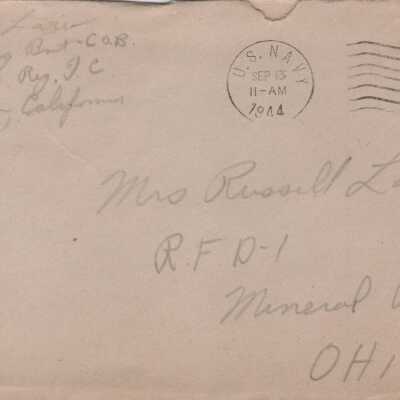 Bat-Co B.
Reg. I. C
California
U.S. NAVY
SEP 13
11-AM
1944
Mrs Russell La
R.F.D-1
Mineral
OHI